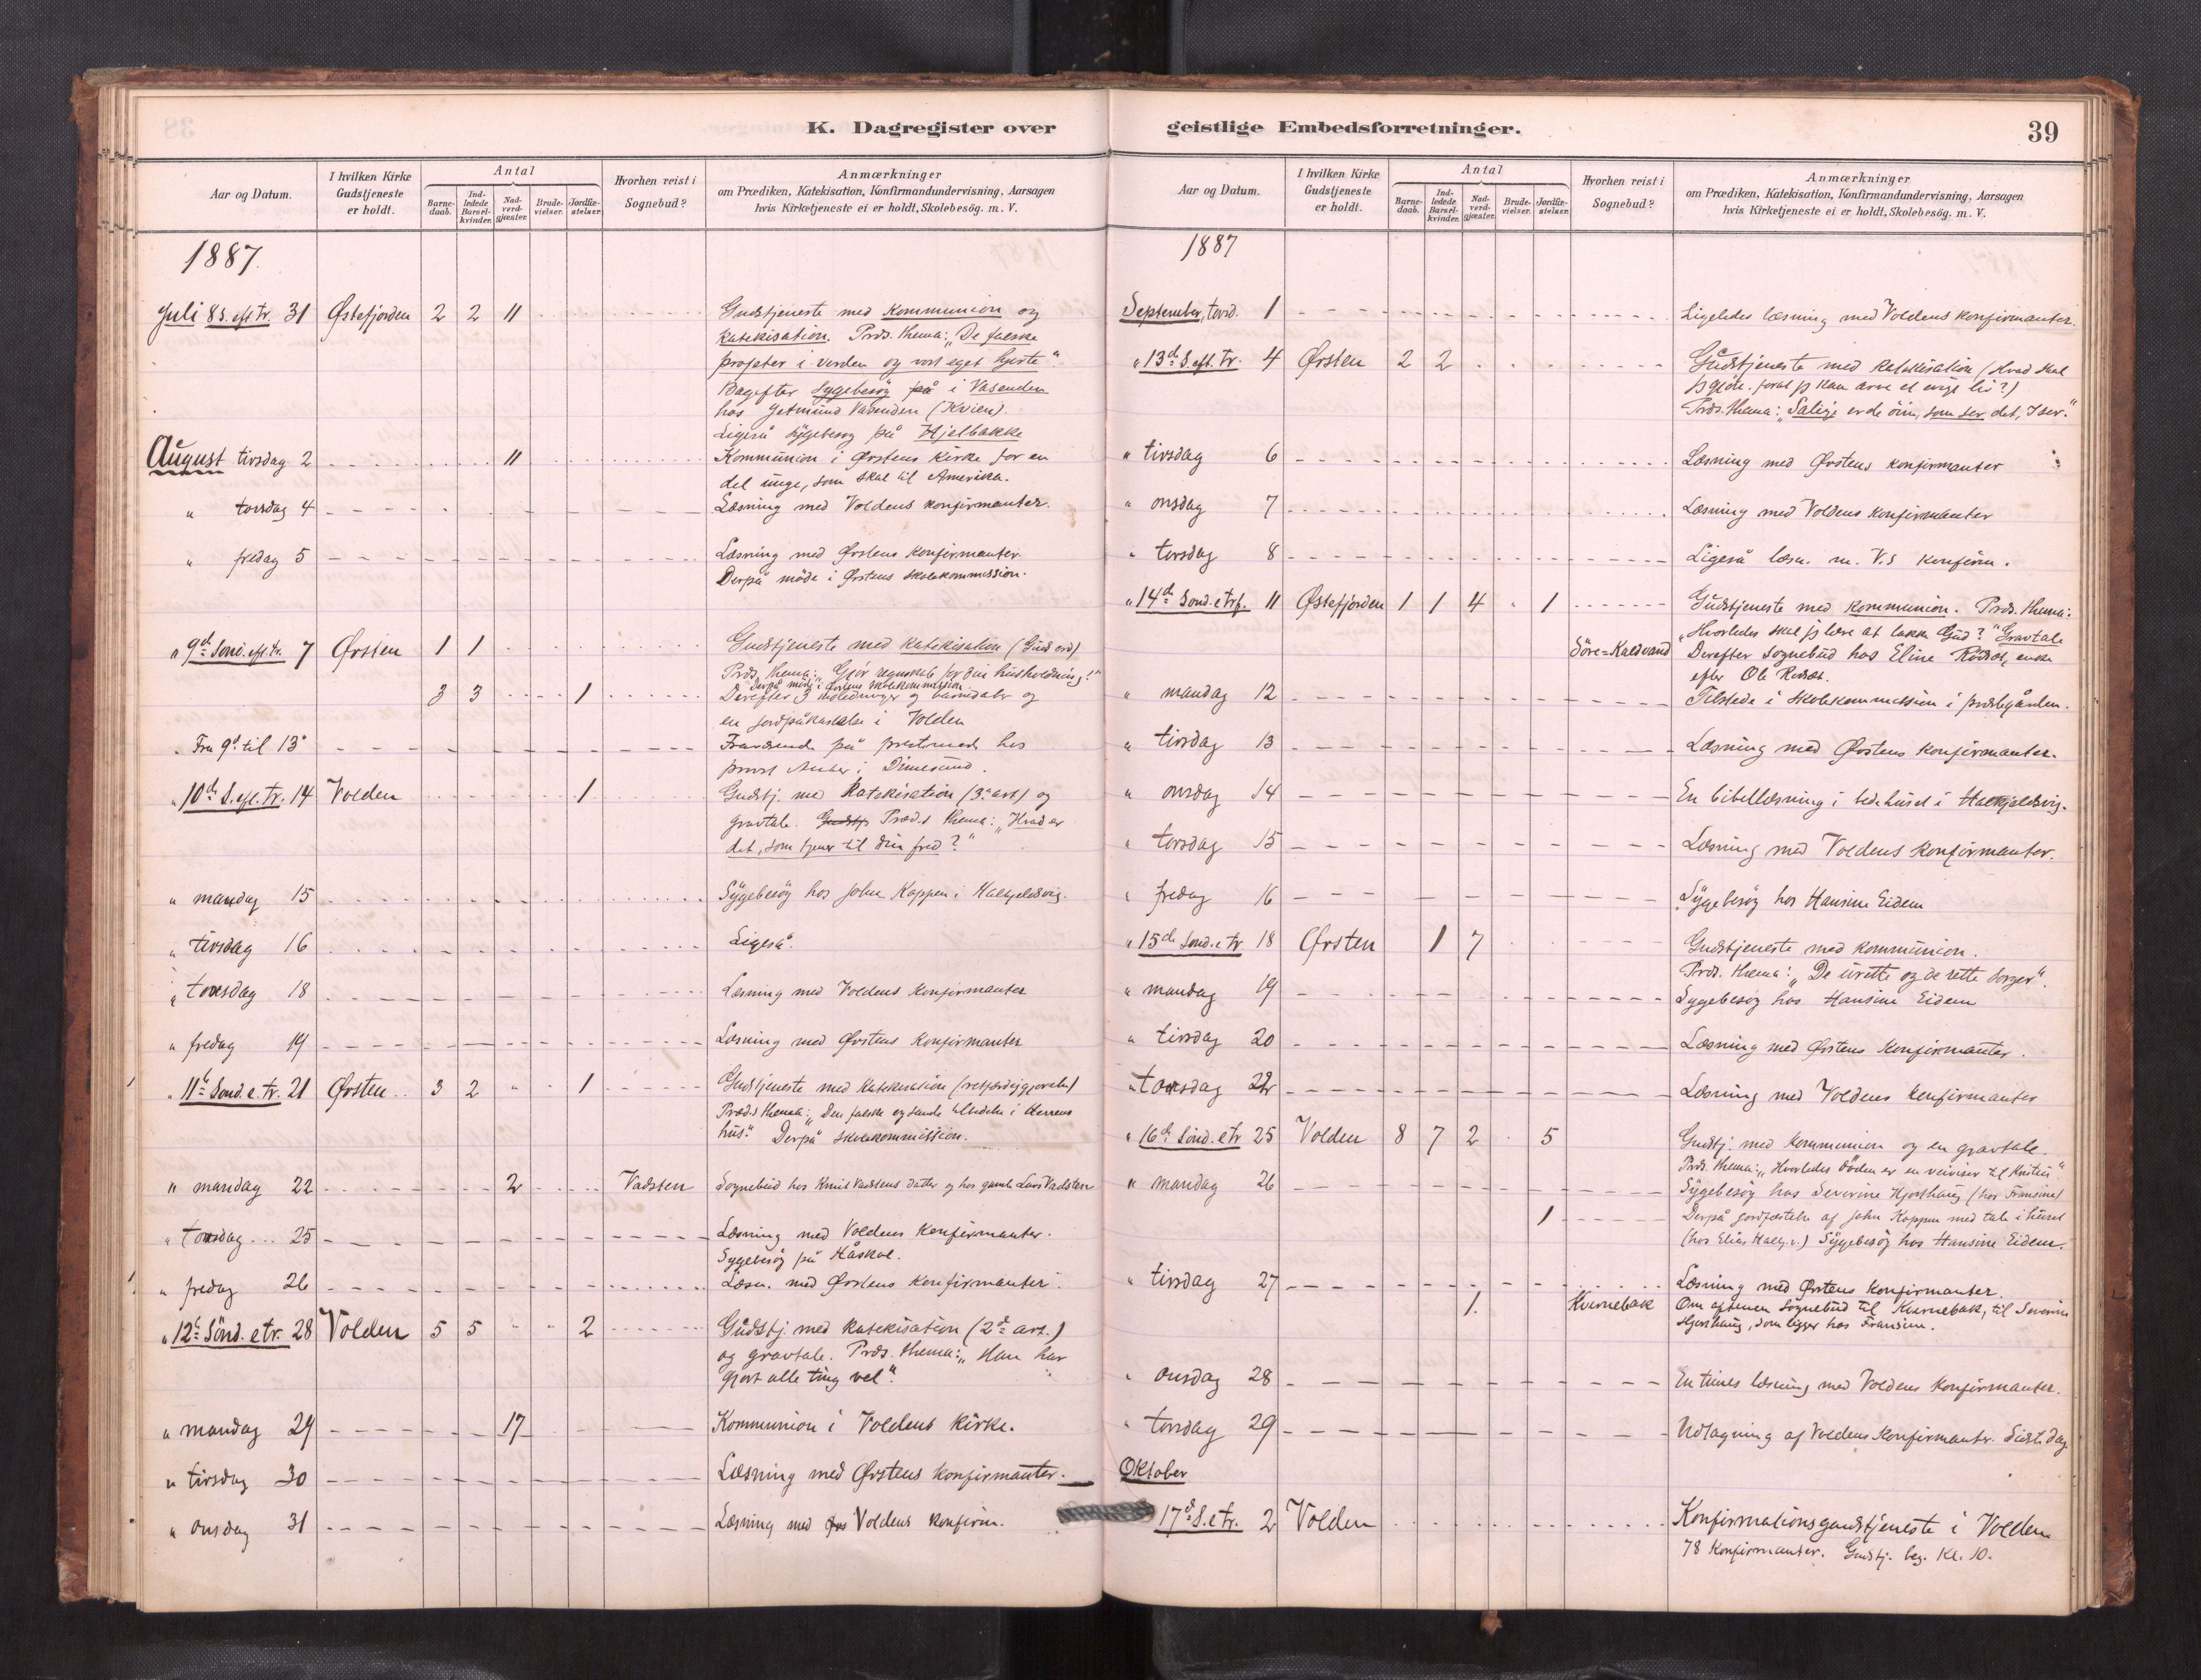 K. Dagregister over
Aar og Datum.
I hvilken Kirke Gudstjeneste er holdt.
Antal
Barnedaab.
Indledede Barselkvinder.
Nadverdgjæster.
Brudevielser.
Jordfæstelser.
Hvorhen reist i Sognebud?
Anmærkninger
om Prædiken, Katekisation, Konfirmandundervisning, Aarsagen
hvis Kirketjeneste ei er holdt, Skolebesög. m. V.
1887.
Juli 8 S. eft. tr. 31 Østefjorden 2 2 11 Gudstjeneste med Kommunion og
katekisation. Præds. thema: „De falske
profeter i verden og vort eget hjerte".
Bagefter sygebesøg på i Vasenden
hos Vasenden (Kvien).
Ligeså sygebesøg på Hjelbakke
August tirsdag 2 11 Kommunion i Ørstens kirke for en
del unge, som skal til Amerika.
" torsdag 4 Læsning med Voldens konfirmanter.
" fredag 5 Læsning med Ørstens konfirmanter.
Derpå möde i Ørstens skolekommission.
" 9de Sönd. eft. tr. 7 Ørsten 1 1 Gudstjeneste med katekisation (Guds ord)
Præds. thema: „Gjör regnskab for din husholdning!"
Derpå møde i Ørstens skolekommission.
3 3 1 Derefter 3 indledninger og barnedåb og
en jordpåkastelse i Volden
" Fra 9de til 13de Fraværende på prestemøde hos
provst i Dimesund.
" 10de S. eft. Tr. 14 Volden 1 Gudstj. med Katekisation (3de art) og
gravtale. Gudstj. Præd.s thema: „Hvad er
det, som tjener til din fred?"
" mandag 15 Sygebesög hos John Koppen i Halkjeldsvig.
" tirsdag 16 Ligeså.
" torsdag 18 Læsning med Voldens konfirmanter
" fredag 19 Læsning med Ørstens konfirmanter
" 11te Sönd. e. tr. 21 Ørsten 3 2 " 1 Gudstjeneste med katekisation (retfærdiggjørelse)
Præd.s thema: „Den falske og sande tilbedelse i Herrens
hus." Derpå skolekommission.
" mandag 22 2 Vadsten Sognebud hos Knut Vadstens datter og hos gamle Lars Vadsten
" torsdag 25 Læsning med Voldens konfirmanter.
Sygebesøg på Håskol.
" fredag 26 Læsn. med Ørstens konfirmanter.
" 12te Sönd. e tr. 28 Volden 5 5 " " 2 Gudstj. med katekisation (2de art.)
og gravtale. Præds. thema: „Han har
gjort alle ting vel".
" mandag 29 17 Kommunion i Voldens kirke.
" tirsdag 30 Læsning med Ørstens konfirmanter.
" onsdag 31 Læsning med Ørs Voldens konfirm.
geistlige Embedsforretninger.
39
Aar og Datum.
I hvilken Kirke Gudstjeneste er holdt.
Antal
Barnedaab.
Indledede Barselkvinder.
Nadverdgjæster.
Brudevielser.
Jordfæstelser.
Hvorhen reist i Sognebud?
Anmærkninger
om Prædiken, Katekisation, Konfirmandundervisning, Aarsagen
hvis Kirketjeneste ei er holdt, Skolebesög. m. V.
1887
September, torsd. 1 Ligeledes læsning med Voldens konfirmanter.
" 13de S. eft. tr. 4 Ørsten 2 2 Gudstjeneste med katekisation (Hvad skal
jeg gjöre, forat jeg kan arve et evigt liv?)
Præds. thema: „Salige er de öine, som ser det, I ser."
" tirsdag 6 Læsning med Ørstens konfirmanter
" onsdag 7 Læsning med Voldens konfirmanter
" torsdag 8 Ligeså læsn. m. V.s konfirm.
" 14de Sönd. e trf. 11 Østefjorden 1 1 4 " 1 Gudstjeneste med kommunion. Præds. thema:
„Hvorledes skal jeg lære at takke Gud?" Gravtale
Söre=Kaldvand Derefter sognebud hos Eline Rødset, enke
efter Ole Rødset.
" mandag 12 Tilstede i skolekommission i prestegården.
" tirsdag 13 Læsning med Ørstens konfirmanter.
" onsdag 14 En bibellæsning i bedehuset i Halkjeldsvig.
" torsdag 15 Læsning med Voldens konfirmanter.
" fredag 16 Sygebesög hos Hansine Eidem
" 15de Sönd. e tr 18 Ørsten 1 7 Gudstjeneste med kommunion.
Præd. thema: „De urette og de rette sorger".
" mandag 19 Sygebesög hos Hansine Eidem
" tirsdag 20 Læsning med Ørstens konfirmanter.
" torsdag 22 Læsning med Voldens konfirmanter
" 16de Sönd. e tr 25 Volden 8 7 2 5 Gudstj. med kommunion og en gravtale.
Præds. thema: „Hvorledes döden er en veiviser til Kristus".
" mandag 26 Sygebesög hos Severine Hjorthaug (hos Fransine)
1 Derpå jordfæstelse af John Koppen med tale i huset
(hos Elias Halkj.v.) Sygebesög hos Hansine Eidem.
" tirsdag 27 Læsning med Ørstens konfirmanter.
1. Kvernebak Om aftenen sognebud til Kvernebak, til Severine
Hjorthaug, som ligger hos Fransine.
" onsdag 28 En times læsning med Voldens konfirmanter.
" torsdag 29 Udtagning af Voldens konfirmanter. Sidste dag.
Oktober
17de S. e tr. 2 Volden Konfirmationsgudstjeneste i Volden
78 konfirmanter. Gudstj. beg. Kl. 10.